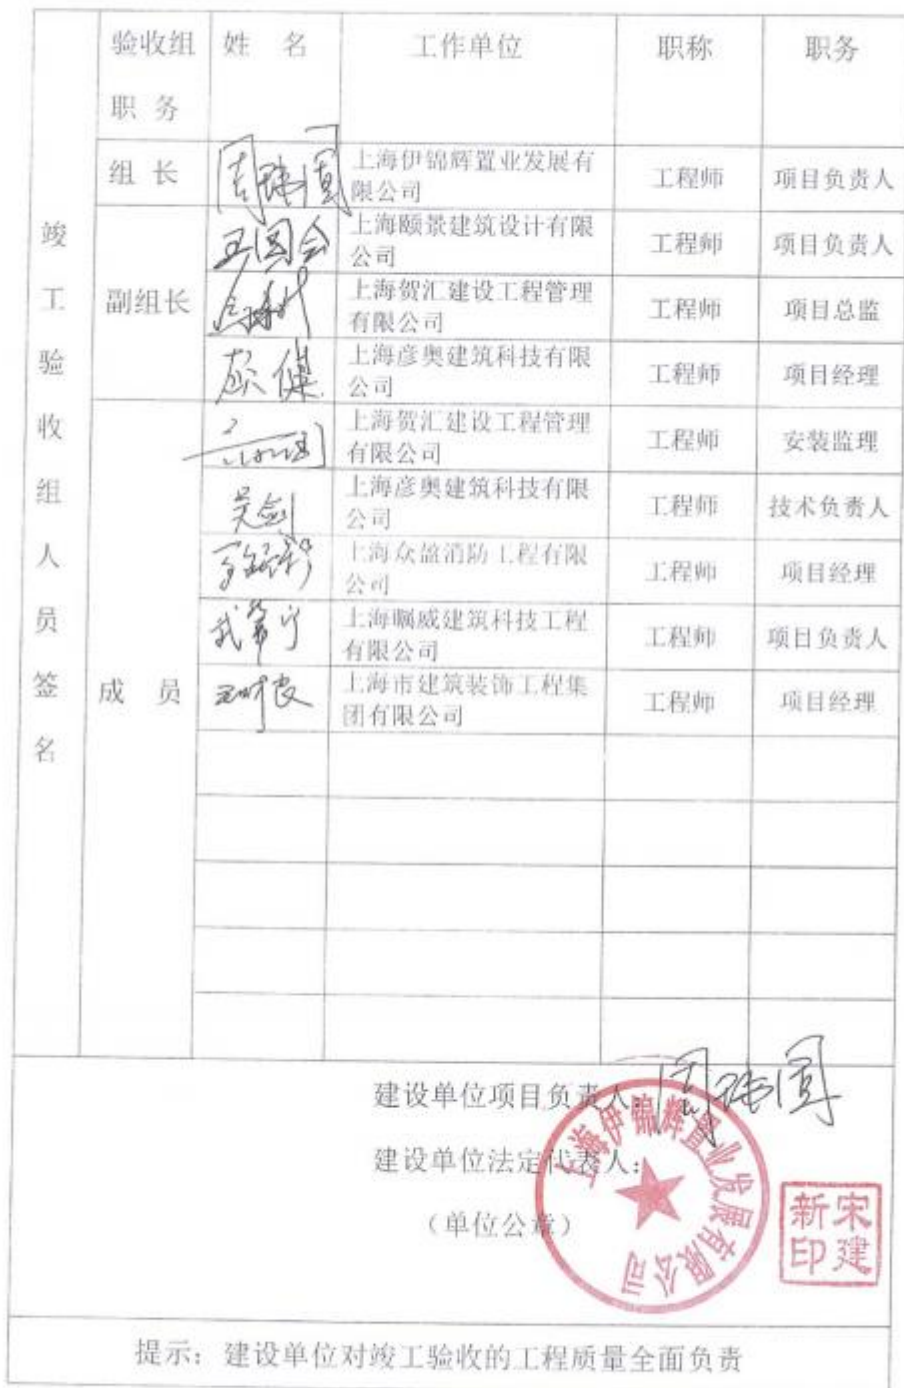 验收组 姓 名 工作单位 职称 职务
职 务
竣工验收组人员签名
组 长 上海伊锦辉置业发展有
限公司 工程师 项目负责人
副组长
王国会 上海颐景建筑设计有限
公司 工程师 项目负责人
上海贺汇建设工程管理
有限公司 工程师 项目总监
顾健 上海彦奥建筑科技有限
公司 工程师 项目经理
成 员
上海贺汇建设工程管理
有限公司 工程师 安装监理
吴剑 上海彦奥建筑科技有限
公司 工程师 技术负责人
上海众盈消防工程有限
公司 工程师 项目经理
上海瞩威建筑科技工程
有限公司 工程师 项目负责人
上海市建筑装饰工程集
团有限公司 工程师 项目经理
建设单位项目负责人:
建设单位法定代表人:
(单位公章)
上海伊锦辉置业发展有限公司
宋建
新印
提示: 建设单位对竣工验收的工程质量全面负责